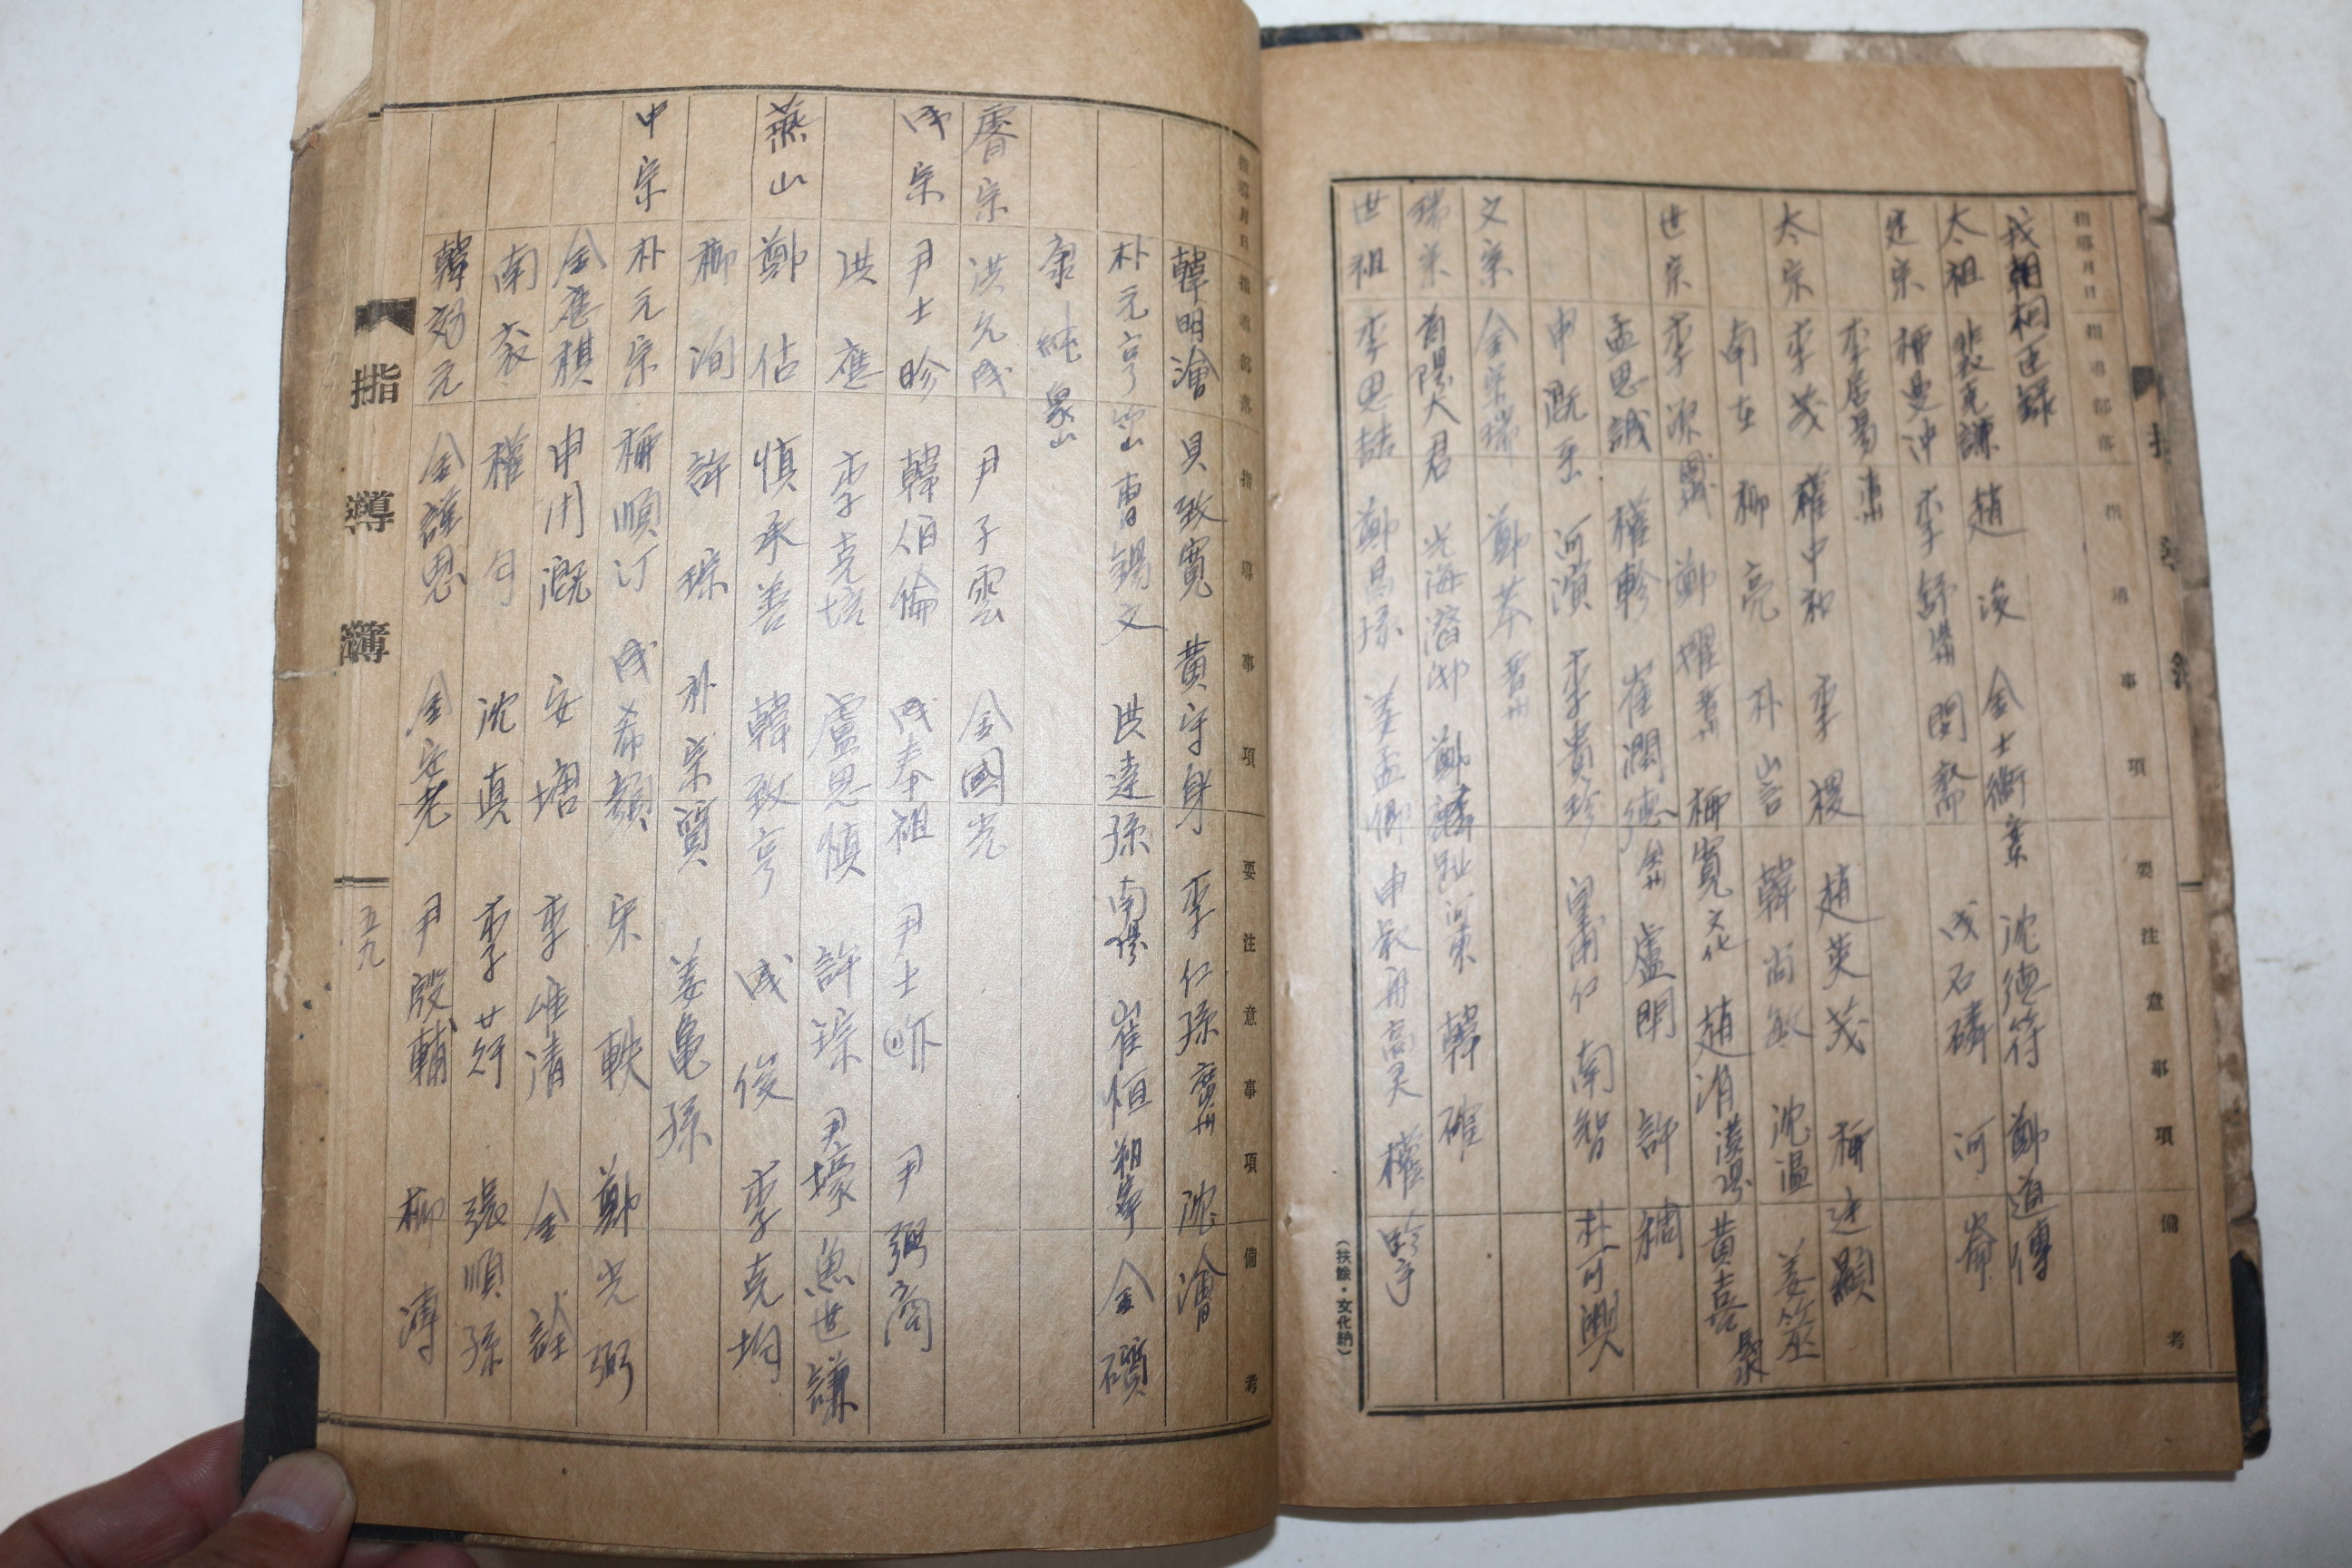 指導月日 指導部落 指導事項 要注意事項 備考
我朝相臣錄
太祖 裴克謙 趙浚 金士衡 沈德符 鄭道傳
成石磷 河崙
定宗 柳曼沖 李舒 閔霽
李居易
太宗 李茂 權中和 李稷 趙英茂 柳廷顯
南在 柳亮 朴訔 韓尚敬 沈温 姜筮
世宗 李原 鄭擢 柳寬 文化 趙涓 漢陽 黃喜
孟思誠 權軫 崔潤德 盧閈 許稠
申槪 河演 李貴珍 皇甫仁 南智 朴可興
文宗 金宗瑞 鄭苯
瑞宗 首陽大君 光海潛邸 鄭麟趾 河東 韓確
世祖 李思喆 鄭昌孫 姜孟卿 申叔舟 高灵 權擥
(扶餘・文化納)
指導月日 指導部落 指導事項 要注意事項 備考
韓明澮 具致寬 黃守身 李仁孫 廣州 沈澮
朴元亨 曺錫文 洪達孫 南陽 崔恒 朔寧 金礩
康純 象山
睿宗 洪允成 尹子雲 金國光
成宗 尹士昑 韓伯倫 成奉祖 尹士昕 尹弼商
洪應 李克培 盧思愼 許琮 尹壕 魚世謙
燕山 鄭佸 愼承善 韓致亨 成俊 李克均
柳洵 許琛 朴宗質 姜亀孫
中宗 朴元宗 柳順汀 成希顔 宋軼 鄭光弼
金應祺 申用漑 安瑭 李惟清 金詮
南袞 權勻 沈貞 李荇 張順孫
韓効元 金謹思 金安老 尹殷輔 柳溥
指導簿
五九